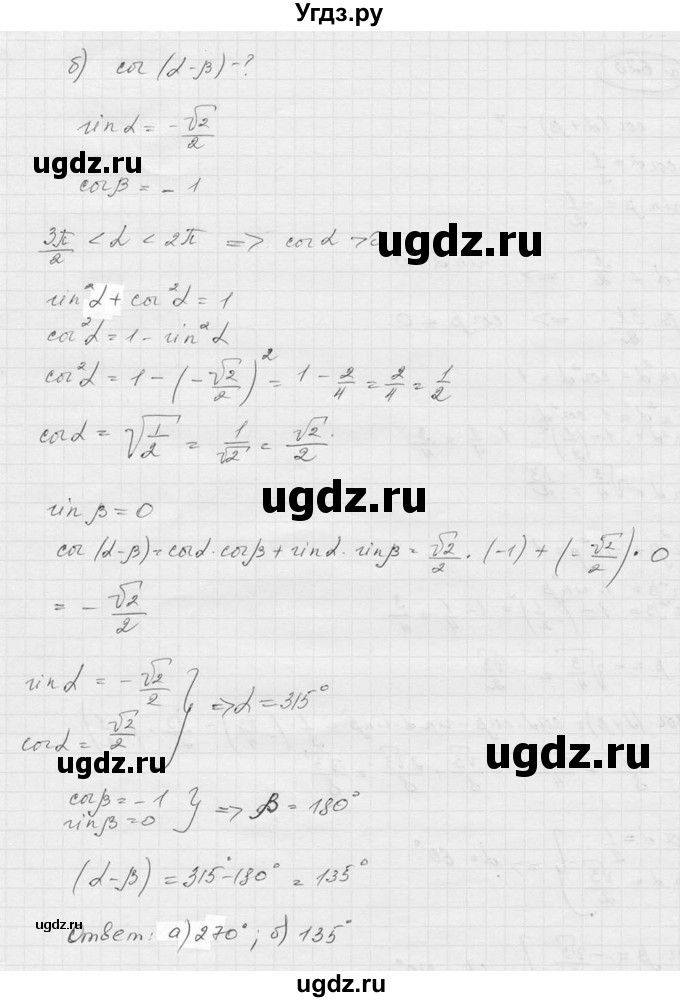 Угдз.ру
б) cos (α-β) -?
sin α = -√2/2
ugdz.ru
cos β = - 1
3π/2 < α < 2π => cos α >
ugdz.ru
sin²α + cos²α = 1
cos²α = 1 - sin²α
cos²α = 1 - (-√2/2)² = 1 - 2/4 = 2/4 = 1/2
cos α = √1/2 = 1/√2 = √2/2.
ugdz.ru
sin β = 0
cos (α-β) = cos α · cos β + sin α · sin β = √2/2 · (-1) + (-√2/2) · 0
= - √2/2
sin α = -√2/2
cos α = √2/2 } => α = 315°
ugdz.ru
ugdz.ru
cos β = -1
sin β = 0 } => β = 180°
(α-β) = 315° - 180° = 135°
ugdz.ru
Ответ: а) 270°; б) 135°
Угдз.ру